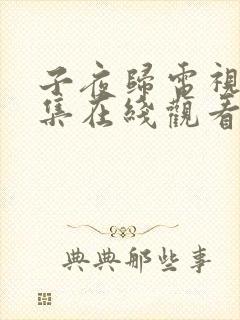 子夜歸電視
集在綫觀看
典典那些事